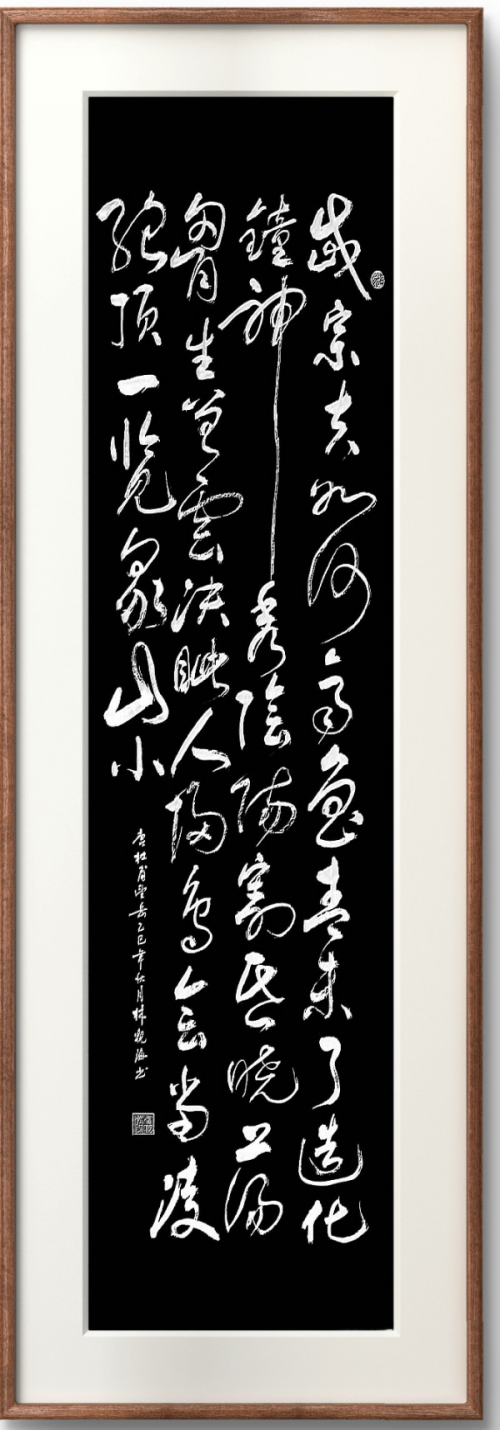 岱宗夫如何齊魯青未了造化
鐘神秀陰陽割昏曉蕩
胷生曾雲決眥入歸鳥會當凌
絕頂一览眾山小
唐杜甫望岳乙巳年月林海书